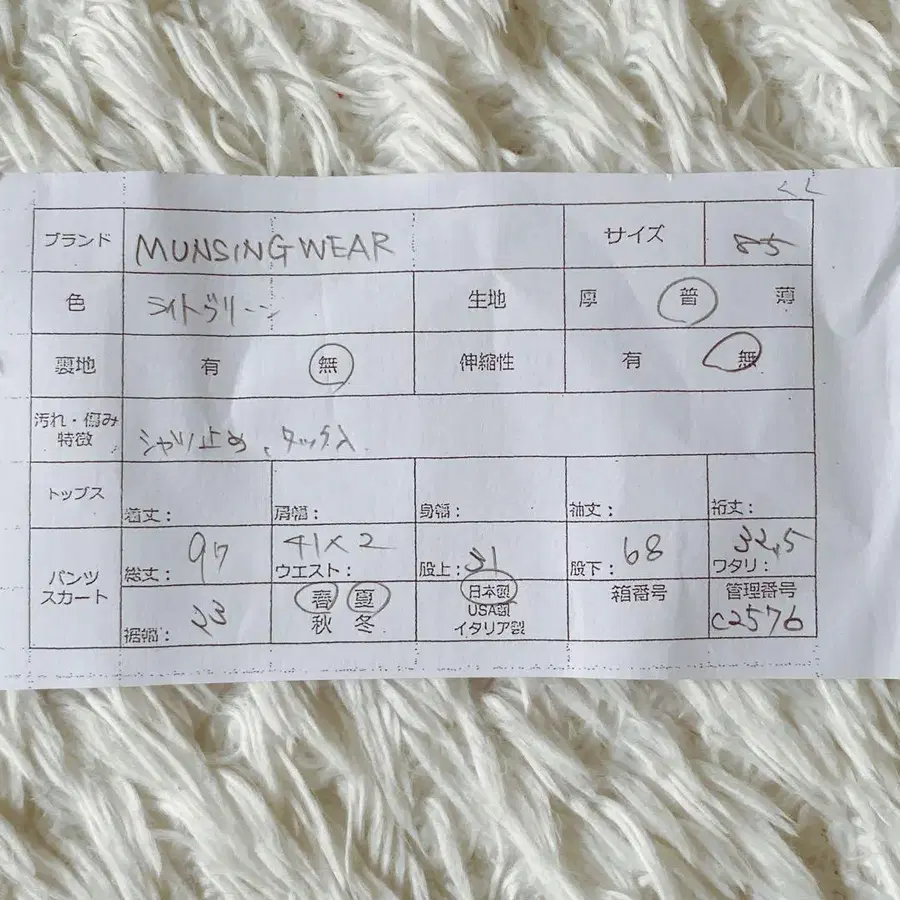 ブランド MUNSINGWEAR サイズ 85
色 ライトグリーン 生地 厚 普 薄
裏地 有 無 伸縮性 有 無
汚れ・傷み
特徴 シャツ止め、タック入
トップス 着丈: 肩幅: 身幅: 袖丈: 裄丈:
パンツ
スカート 総丈: 97 41×2 ウエスト: 股上: 31 股下: 68 32.5 ワタリ:
裾幅: 23 春 夏 日本製 箱番号 管理番号
秋 冬 USA製 C2576
イタリア製